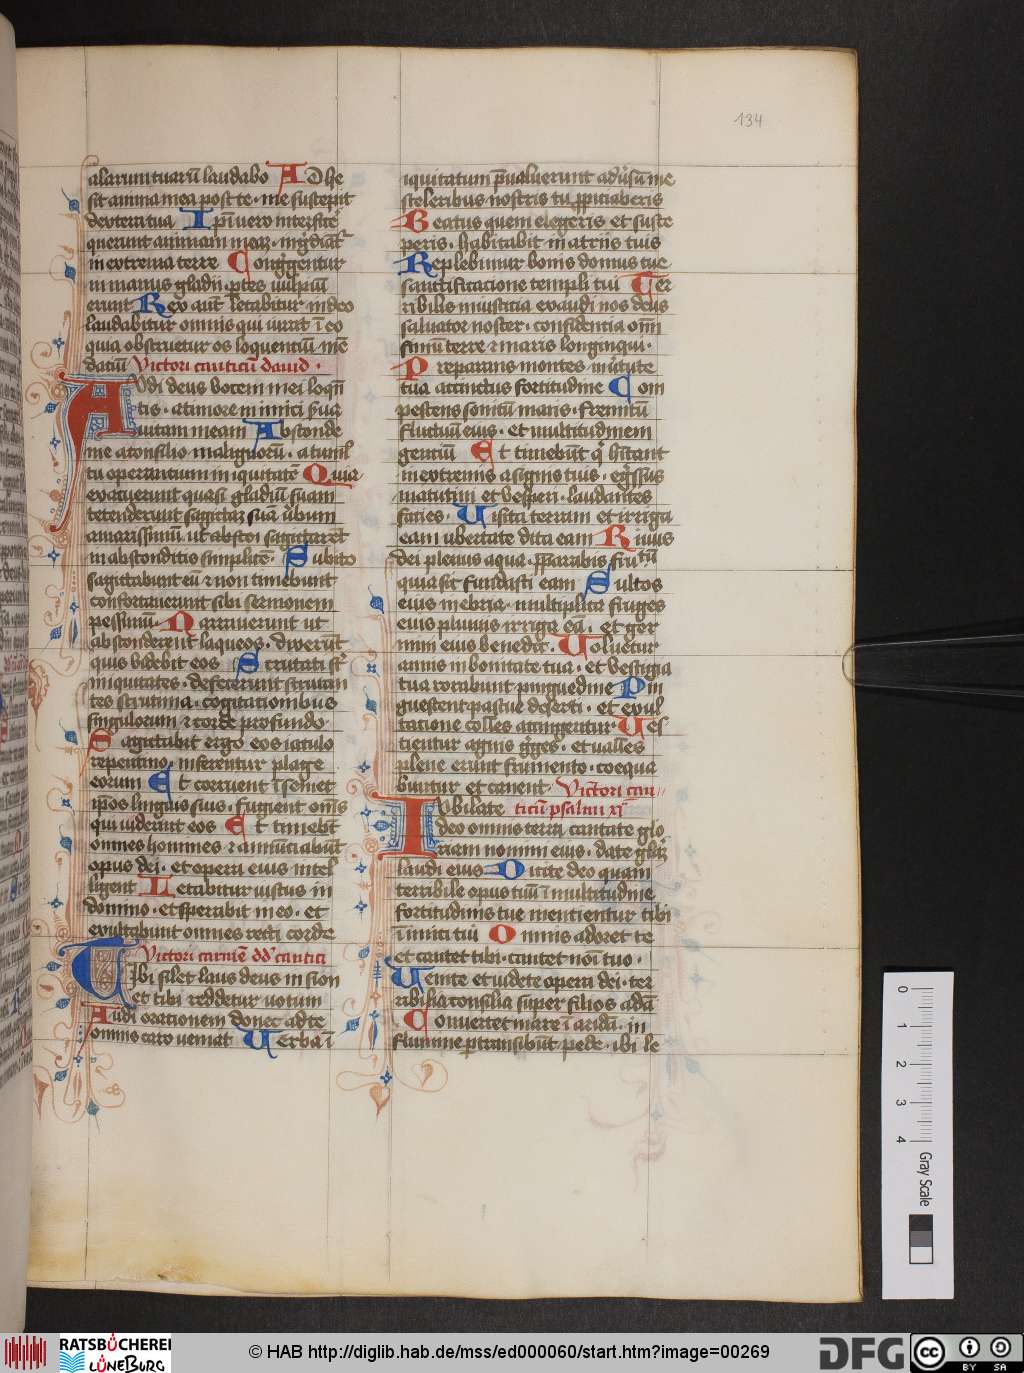 134
alarum tuarū laudabo Adhe
sit anima mea post te · me suscepit
dextera tua Ipi vero interficē
querunt animam meaz · ingrediāt
in extrema terre Congregentur
in manus gladii · ptes vulpiū
erunt Rex aut letabitur in deo
laudabitur omnis qui iurat ī eo
quia obstruetur os loquentiū mē
daciū Victori canticū dauid ·
Audi deus vocem mei loqn
tis · a timore inimici serua
vitam meam Absconde
me a consilio malignorū · a tumul
tu operantium iniquitatē Quia
exacuerunt quasi gladiū suam
tetenderunt sagittaz suā verbum
amarissimū · ut abscōi sagittaret
in absconditis simplicē · Subito
sagittabunt eū et non timebunt
confortauerunt sibi sermonem
pessimū · Narrauerunt ut
absconderent laqueos · dixerūt
quis videbit eos Scrutati sūt
iniquitates · defecerunt scrutan
tes scrutinia · cogitationibus
singulorum et corde profundo ·
Sagittabit ergo eos iaculo
repentino inferentur plage
eorum Et corruent ī semet
ipōs linguis suis · fugient omēs
qui viderint eos Et timebūt
omnes homines et annūciabūt
opus dei · et opera eius intel
ligent Letabitur iustus in
domino · et sperabit in eo · et
exultabunt omnes recti corde
Victori carmē dd cantici
Tibi silet laus deus in sion
et tibi reddetur votum
Audi orationem donec ad te
omnis caro veniat Verba ī
iquitatum pualuerunt adūsū me
sceleribus nostris tu ppiciaberis
Beatus quem elegeris et susce
peris · habitabit in atriis tuis
Replebimur bonis domus tue
sanctificatione templi tui Ter
ribilis in iusticia exaudi nos deus
saluator noster · confidentia omī
finiū terre et maris longinqui ·
Preparans montes in virtute
tua accinctus fortitudine Com
pescens sonitū maris · fremitū
fluctuū eius · et multitudinem
genciū Et timebūt q hītant
in extremis a signis tuis · egressus
matutini et vesperi · laudantes
facies · Uisita terram et irriga
eam ubertate dita eam Riuus
dei plenus aqua · pparabis frumtū
quia sic fundasti eam Sulcos
eius inebria · multiplica fruges
eius pluuiis irriga eā · et ger
mini eius benedic · Uoluetur
annus in bonitate tua · et vestigia
tua rorabunt pinguedine Pin
guescent pascue deserti · et exul
tatione colles accingentur · Ues
tientur agnis greges · et valles
plene erunt frumento · coequa
buntur et canent Victori can
Iubilate ticū psalmi xi
deo omnis terra cantate glo
riam nomini eius · date glīaz
laudi eius Dicite deo quam
terribile opus tuū ī multitudine
fortitudinis tue mentientur tibi
īimici tui Omnis adoret te
et cantet tibi · cantet nōi tuo ·
Uenite et videte opera dei · ter
ribilia consilia super filios adā
Conuertet mare ī aridā · in
flumine ptransibūt pede · ibi le
0 1 2 3 4 Gray Scale
RATSBÜCHEREI
LÜNEBURG
© HAB http://diglib.hab.de/mss/ed000060/start.htm?image=00269
DFG
cc BY SA